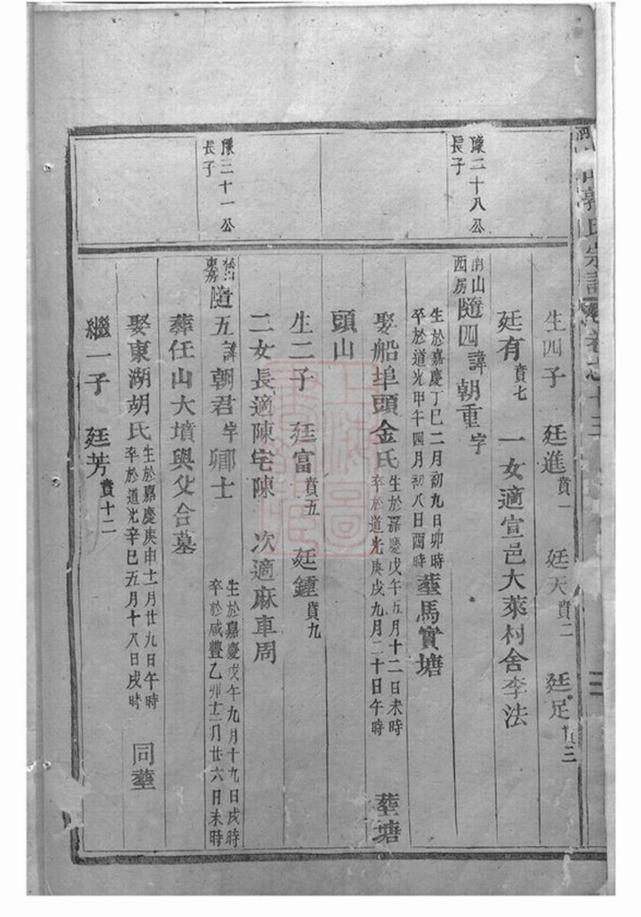 郭氏宗譜 卷之十三
生四子 廷進賁一 廷天賁二 廷足賁三
廷有賁七 一女適宣邑大萊村舍李法
陳二十八公長子
南山西房隨四諱朝重字
生於嘉慶丁巳二月初九日卯時
卒於道光甲午四月初八日酉時
葬馬實塘
娶船埠頭金氏
生於嘉慶戊午五月十二日未時
卒於道光庚戌九月二十日午時
葬塘
頭山
生二子 廷富賁五 廷鍾賁九
二女長適陳宅陳 次適麻車周
陳三十一公長子
隨五諱朝君字卿士
生於嘉慶戊午九月十九日戌時
卒於咸豐乙卯十二月廿六日未時
葬任山大墳與父合墓
娶東湖胡氏
生於嘉慶庚申十一月廿九日午時
卒於道光辛巳五月十八日戌時
同葬
繼一子 廷芳賁十二